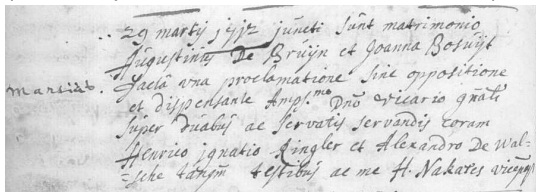 29 martij 1712 juncti sunt matrimonio
Augustinus De Bruijn et Joanna Bosuijt
Martius. facta una proclamatione sine oppositione
et dispensante Amps.mo Dno vicario gnali
super duabus ac servatis servandis coram
Henrico ignatio Ringler et Alexandro De Wal-
-sche tanqm testibus ac me H. Nakares vicepast